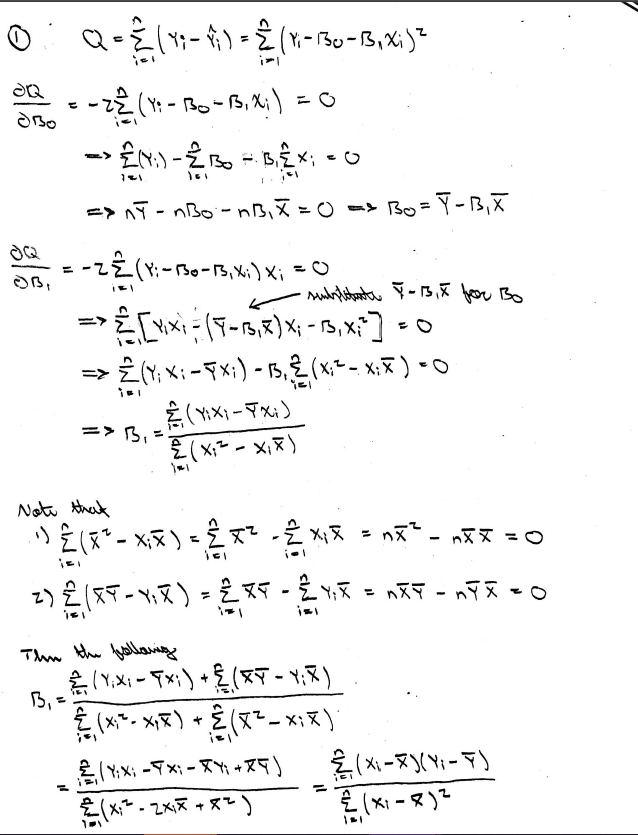 ① Q = Σ_{i=1}^{n} (Yi - Ŷi) = Σ_{i=1}^{n} (Yi - B0 - B1Xi)²
∂Q/∂B0 = -2 Σ_{i=1}^{n} (Yi - B0 - B1Xi) = 0
=> Σ_{i=1}^{n} (Yi) - Σ_{i=1}^{n} B0 - B1 Σ_{i=1}^{n} Xi = 0
=> nȲ - nB0 - nB1X̄ = 0 => B0 = Ȳ - B1X̄
∂Q/∂B1 = -2 Σ_{i=1}^{n} (Yi - B0 - B1Xi) Xi = 0
substitute Ȳ - B1X̄ for B0
=> Σ_{i=1}^{n} [YiXi - (Ȳ - B1X̄) Xi - B1Xi²] = 0
=> Σ_{i=1}^{n} (YiXi - ȲXi) - B1 Σ_{i=1}^{n} (Xi² - XiX̄) = 0
=> B1 = Σ_{i=1}^{n} (YiXi - ȲXi) / Σ_{i=1}^{n} (Xi² - XiX̄)
Note that
1) Σ_{i=1}^{n} (X̄² - XiX̄) = Σ_{i=1}^{n} X̄² - Σ_{i=1}^{n} XiX̄ = nX̄² - nX̄X̄ = 0
2) Σ_{i=1}^{n} (X̄Ȳ - YiX̄) = Σ_{i=1}^{n} X̄Ȳ - Σ_{i=1}^{n} YiX̄ = nX̄Ȳ - nȲX̄ = 0
the following
B1 = [Σ_{i=1}^{n} (YiXi - ȲXi) + Σ_{i=1}^{n} (X̄Ȳ - YiX̄)] / [Σ_{i=1}^{n} (Xi² - XiX̄) + Σ_{i=1}^{n} (X̄² - XiX̄)]
= Σ_{i=1}^{n} (YiXi - ȲXi - X̄Yi + X̄Ȳ) / Σ_{i=1}^{n} (Xi² - 2XiX̄ + X̄²) = Σ_{i=1}^{n} (Xi - X̄)(Yi - Ȳ) / Σ_{i=1}^{n} (Xi - X̄)²